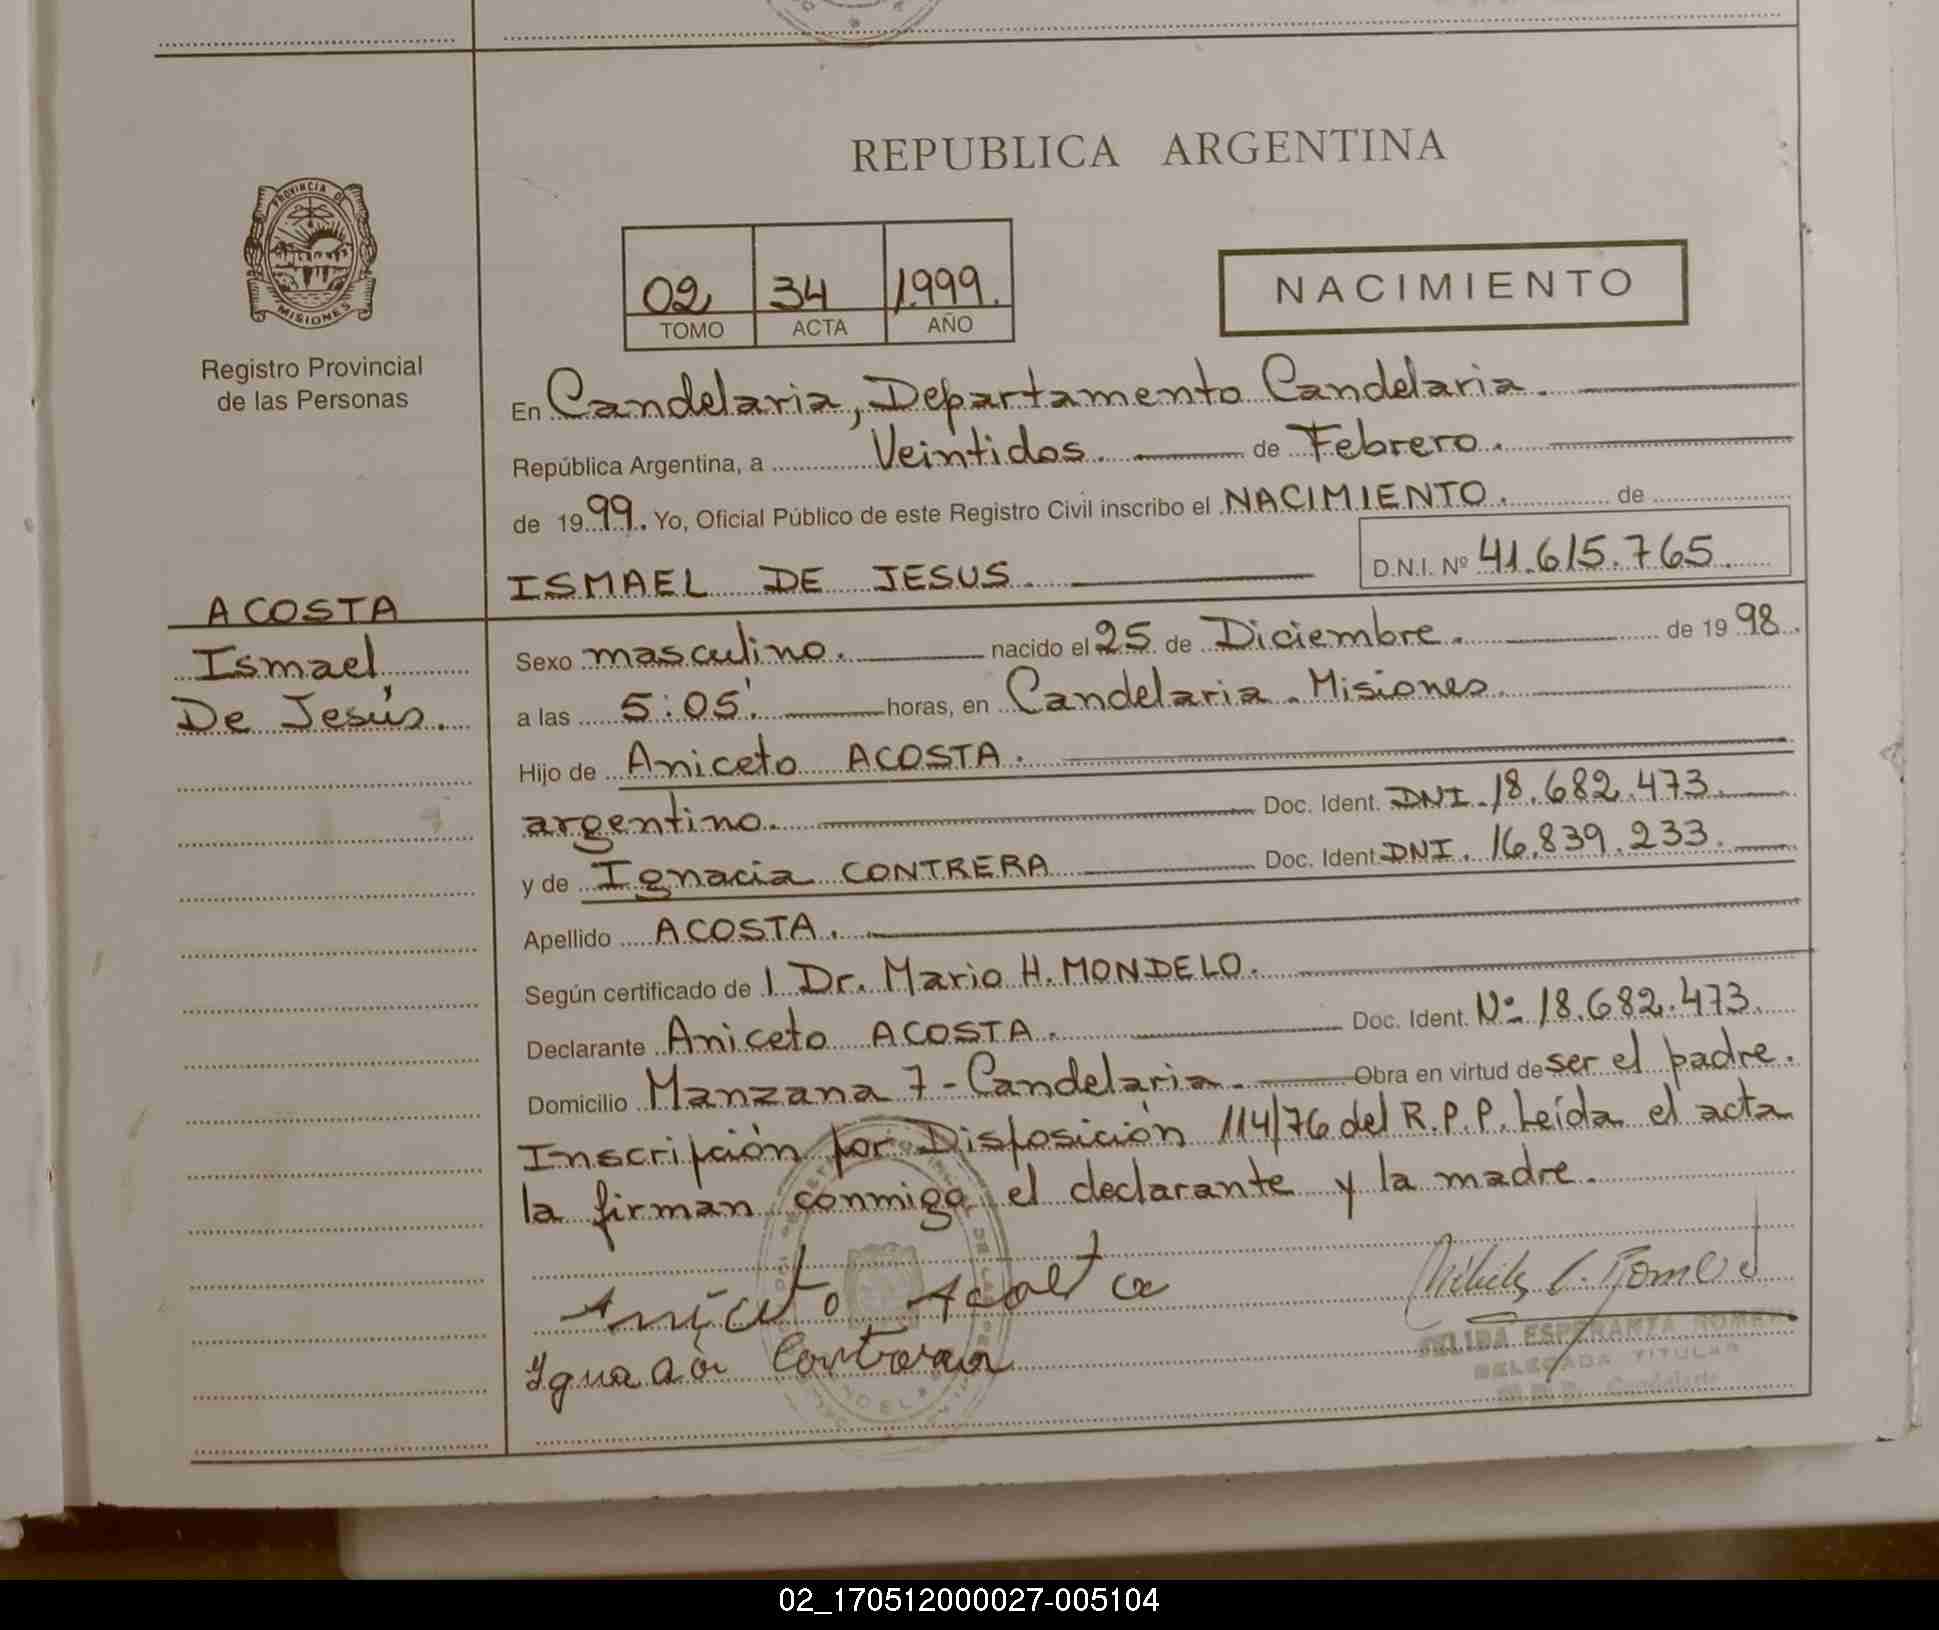 REPUBLICA ARGENTINA
PROVINCIA DE
MISIONES
Registro Provincial
de las Personas
02 34 1.999.
TOMO ACTA AÑO
NACIMIENTO
En Candelaria, Departamento Candelaria.
República Argentina, a Veintidos. de Febrero.
de 1999. Yo, Oficial Público de este Registro Civil inscribo el NACIMIENTO. de
ISMAEL DE JESUS D.N.I. Nº 41.615.765
ACOSTA
Ismael
De Jesús.
Sexo masculino. nacido el 25 de Diciembre. de 1998.
a las 5:05'. horas, en Candelaria - Misiones
Hijo de Aniceto ACOSTA.
argentino. Doc. Ident. DNI. 18.682.473.
y de Ignacia CONTRERA Doc. Ident. DNI. 16.839.233.
Apellido ACOSTA.
Según certificado de l Dr. Mario H. MONDELO.
Declarante Aniceto ACOSTA. Doc. Ident. Nº 18.682.473.
Domicilio Manzana 7 - Candelaria. Obra en virtud de ser el padre.
Inscripción por Disposición 114/76 del R.P.P. Leída el acta
la firman conmigo, el declarante y la madre.
Aniceto Acosta
DELEGADA TITULAR
02_170512000027-005104